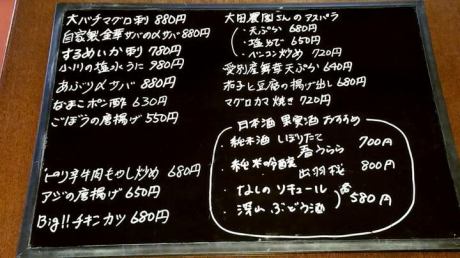 大バチマグロ刺 880円
自家製金華サバの〆サバ 880円
するめいか刺 780円
小川の塩水うに 980円
あぶり〆サバ 880円
なまこポン酢 630円
ごぼうの唐揚げ 550円
ピリ辛牛肉もやし炒め 680円
アジの唐揚げ 650円
Big!! チキンカツ 680円
大田農園さんのアスパラ
・天ぷら 680円
・塩ゆで 650円
・ベーコン炒め 720円
愛別産舞茸天ぷら 640円
茄子と豆腐の揚げ出し 680円
マグロカマ焼き 720円
日本酒 果実酒 おすすめ
・純米酒 しぼりたて
春うらら 700円
・純米吟醸
出羽桜 800円
・なしのリキュール
・深山 ぶどう酒
各 580円